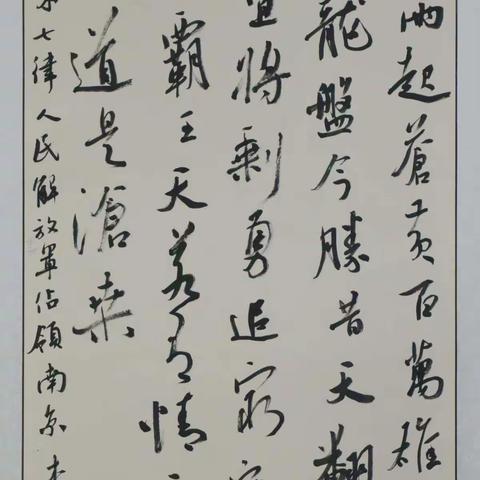 雨起蒼黃百萬雄
龍盤今勝昔天翻
宜將剩勇追窮寇
霸王天若有情
道是滄桑
七律人民解放軍佔領南京